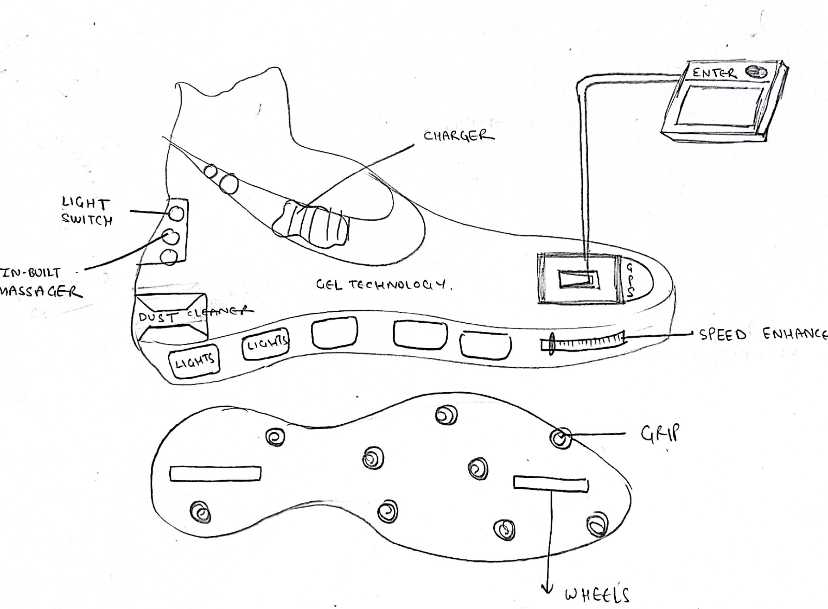 ENTER
CHARGER
LIGHT
SWITCH
IN-BUILT
MASSAGER
GPS
GEL TECHNOLOGY.
DUST CLEANER
LIGHTS
LIGHTS
SPEED ENHANCE
GRIP
WHEELS